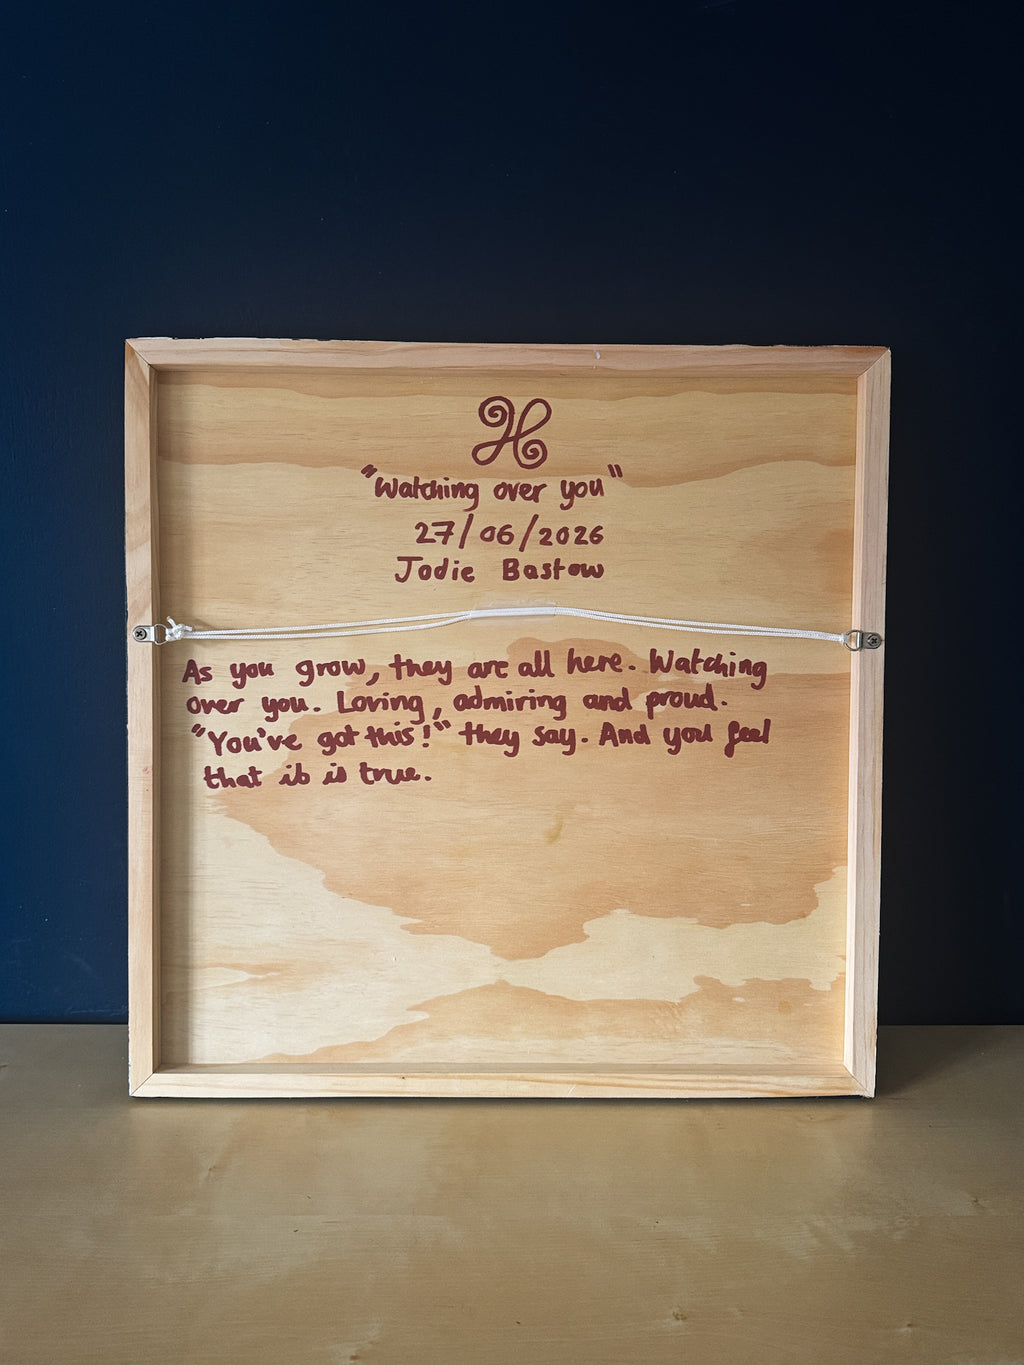 "Watching over you"
27/06/2026
Jodie Bastow
As you grow, they are all here. Watching
over you. Loving, admiring and proud.
"You've got this!" they say. And you feel
that it is true.